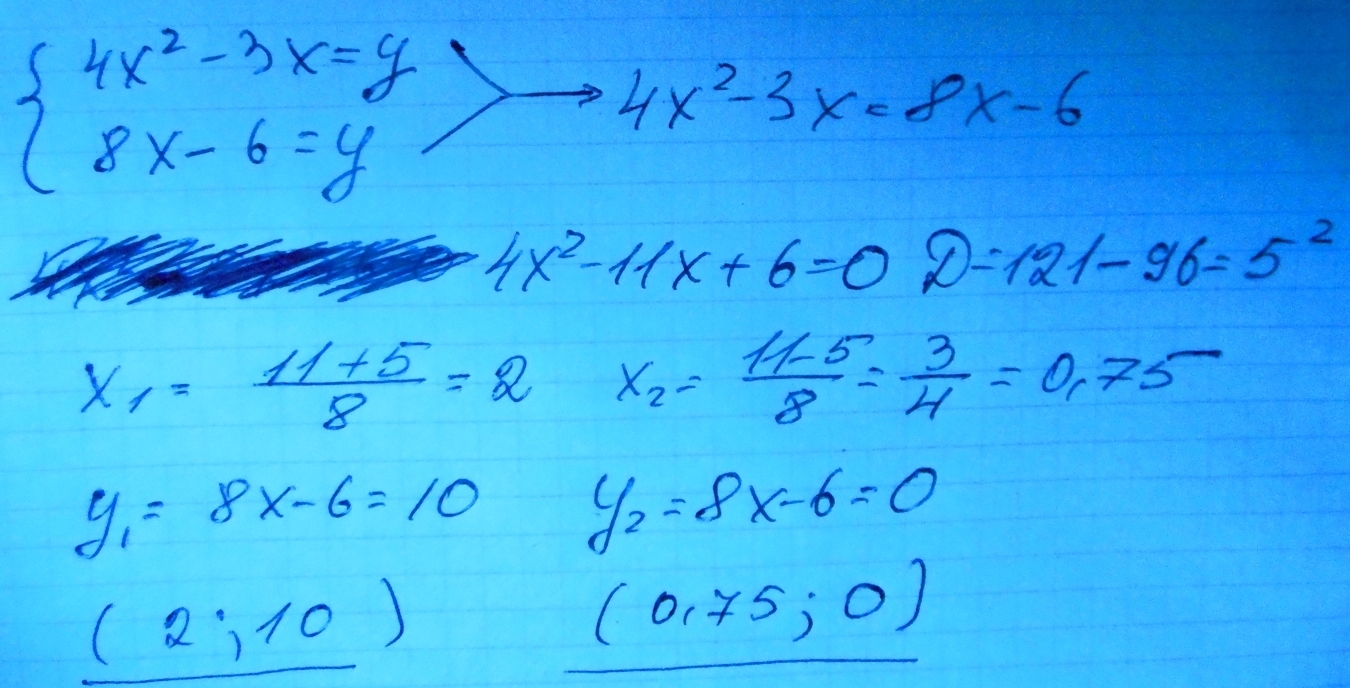 { 4x² - 3x = y
8x - 6 = y → 4x² - 3x = 8x - 6
4x² - 11x + 6 = 0 D = 121 - 96 = 5²
x₁ = 11 + 5 / 8 = 2 x₂ = 11 - 5 / 8 = 3/4 = 0,75
y₁ = 8x - 6 = 10 y₂ = 8x - 6 = 0
( 2 ; 10 ) ( 0,75 ; 0 )